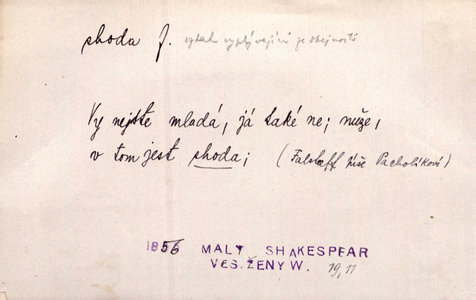 shoda f. vztah vyplývající ze stejnosti
Vy nejste mladá, já také ne; nuže,
v tom jest shoda; (Falstaff píše Pacholíkové)
1856 MALÝ SHAKESPEAR
VES.ŽENY W. 19,11